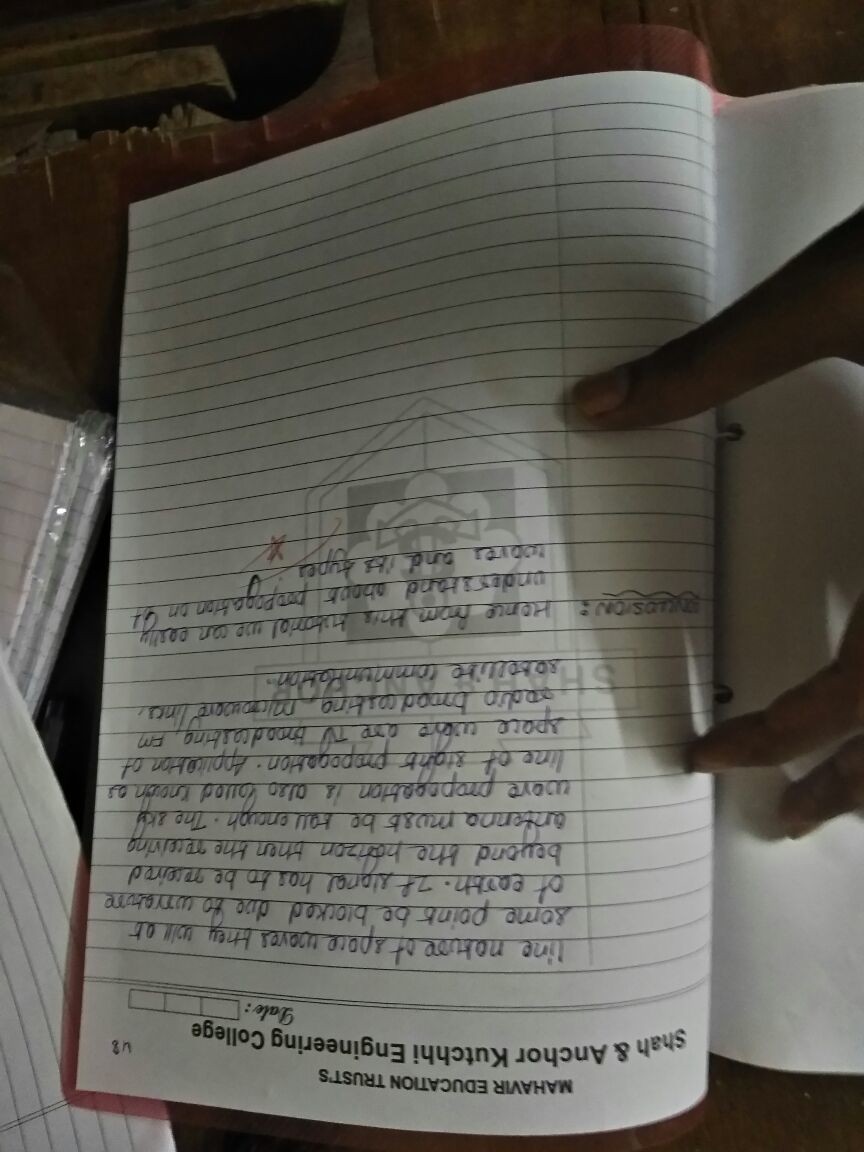 MAHAVIR EDUCATION TRUST'S
Shah & Anchor Kutchhi Engineering College
48
Date:
line nature of space waves they will at
some point be blocked due to curvature
of earth. If signal has to be received
beyond the horizon then the receiving
antenna must be tall enough. The sky
wave propogation is also called known as
line of sight propogation. Application of
space wave are TV broadcasting, FM
radio broadcasting, microwave lines,
SHAH & ANCHOR
satellite communication.
CONCLUSION: Hence from this tutorial we can easily
understand about propogation on of
waves and its types